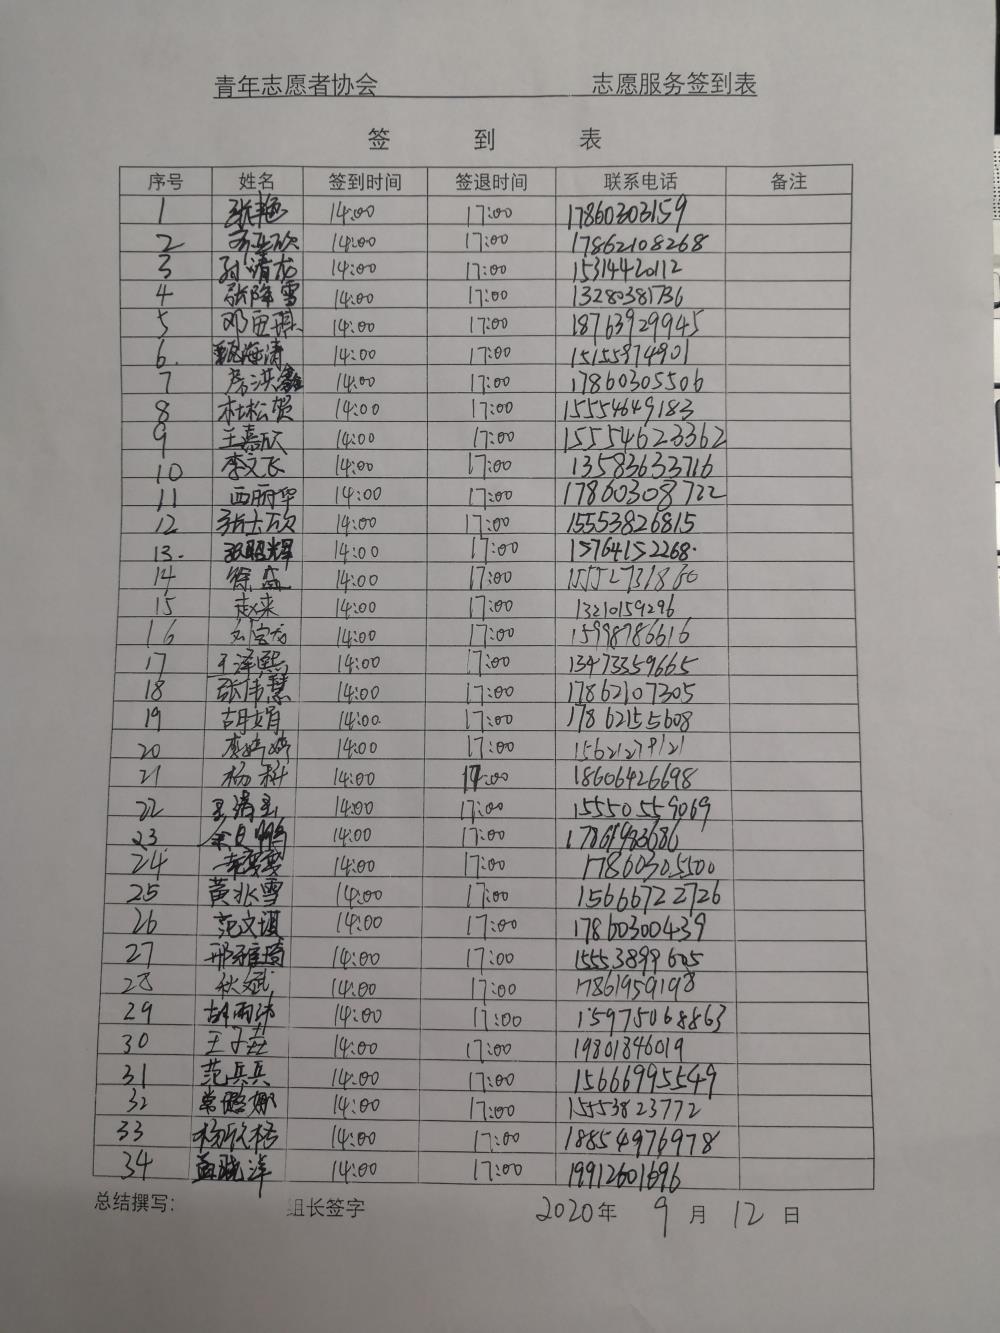 青年志愿者协会 志愿服务签到表
签 到 表
序号 姓名 签到时间 签退时间 联系电话 备注
1 张艳 14:00 17:00 17860303159
2 14:00 17:00 17862108268
3 孙清龙 14:00 17:00 15314420112
4 张降雪 14:00 17:00 13280381736
5 邓亚琪 14:00 17:00 18763929945
6. 甄海涛 14:00 17:00 15155974901
7 房洪鑫 14:00 17:00 17860305506
8 杜松贺 14:00 17:00 15554649183
9 王嘉欣 14:00 17:00 15554623362
10 李文飞 14:00 17:00 13583633716
11 西丽华 14:00 17:00 17860308722
12 张士欣 14:00 17:00 15553826815
13. 张昭辉 14:00 17:00 15764152268.
14 徐 14:00 17:00 15552731860
15 赵来 14:00 17:00 13210159296
16 刘宝龙 14:00 17:00 15998786616
17 王泽熙 14:00 17:00 13473359665
18 张伟慧 14:00 17:00 17862107305
19 胡娟 14:00 17:00 17862155608
20 李婷婷 14:00 17:00 15621279121
21 杨科 14:00 17:00 18606426698
22 王清玉 14:00 17:00 15550559069
23 14:00 17:00
24 雯雯 14:00 17:00 17860305500
25 黄兆雪 14:00 17:00 15666722726
26 范文琪 14:00 17:00 17860300439
27 邢雅琦 14:00 17:00 15553899605
28 秋斌 14:00 17:00 17861959198
29 胡雨沛 14:00 17:00 15975068863
30 王子垚 14:00 17:00 19801846019
31 范兵兵 14:00 17:00 15666995549
32 常璐娜 14:00 17:00 15553823772
33 杨欣格 14:00 17:00 18854976978
34 晓洋 14:00 17:00 19912601696
总结撰写: 组长签字 2020年 9 月 12 日